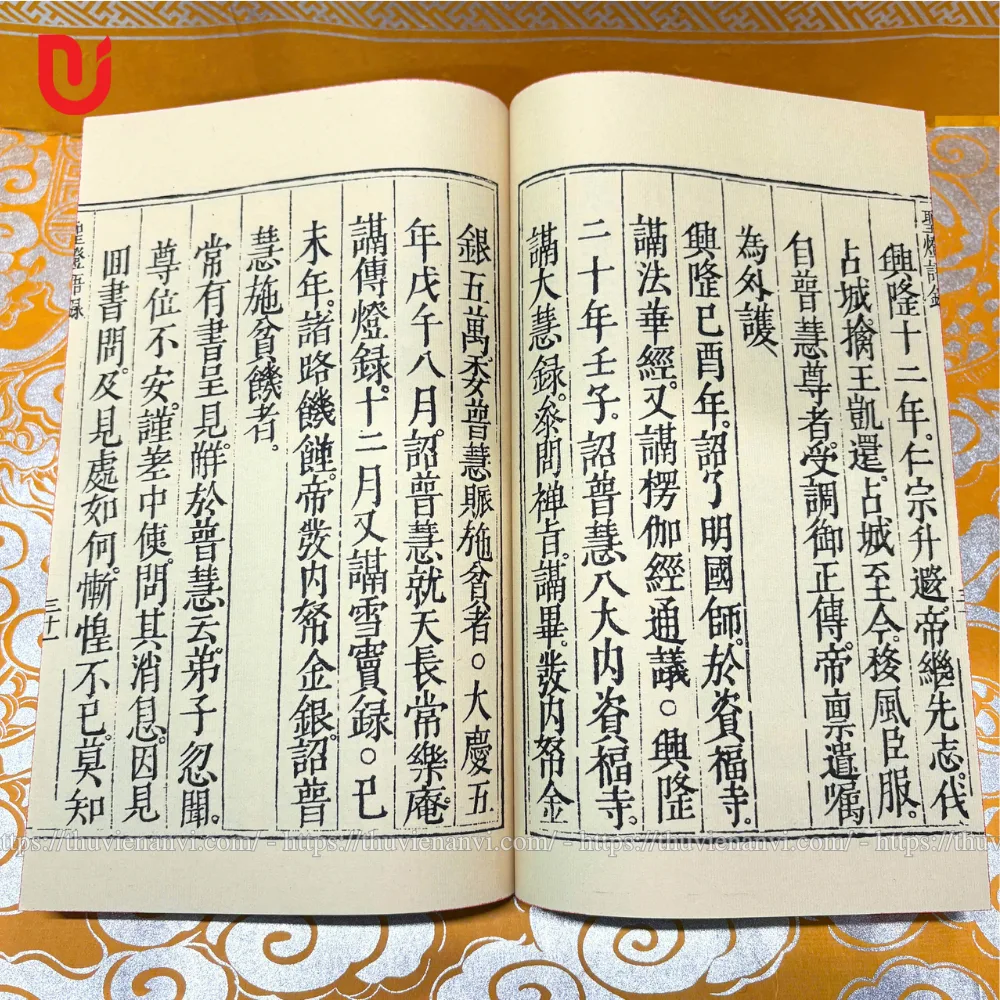 聖燈語錄
興隆十二年。仁宗升遐。帝繼先志。代
占城擒王凱還。占城至今。移風臣服。
自普慧尊者。受調御正傳。帝稟遺嘱
為外護、
興隆已酉年。詔了明國師。於資福寺。
講法華經。又講楞伽經通議○興隆
二十年壬子。詔普慧八大内資福寺。
講大慧錄。叅問禅旨。講畢。發内帑金
銀五萬委普慧賑施貧者○大慶五
年戊午八月。詔普慧就天長常樂庵。
講傳燈録。十二月又講雪竇録○已
未年。諸路饑饉。帝發内帑金銀。詔普
慧施貧饑者。
常有書呈見觧於普慧云。弟子忽聞。
尊位不安。謹差中使。問其消息。因見
囬書問。及見處如何。慚惶不已。莫知
聖燈語录
三十一
https://thuvienanvi.com/ - https://thuvienanvi.com/ - https://thuvienanvi.com/